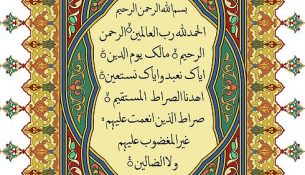 بسم الله الرحمن الرحيم
الحمد لله رب العالمين ۝ الرحمن
الرحيم ۝ مالك يوم الدين ۝
اياك نعبد واياك نستعين ۝
اهدنا الصراط المستقيم ۝
صراط الذين انعمت عليهم ۝
غير المغضوب عليهم
ولا الضالين ۝